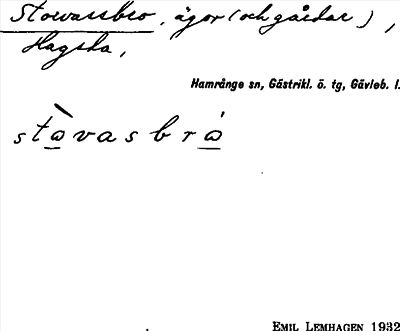 Storvassbro, ägor (och gårdar),
Hagsta,
Hamrånge sn, Gästrikl. ö. tg, Gävleb. l.
stò̱vasbró̱
EMIL LEMHAGEN 1932